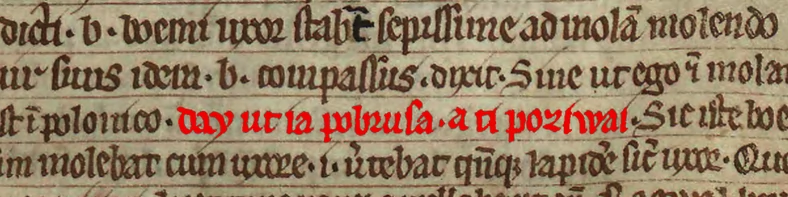 dicti · b · boemi uxor stabat sepissime ad molā molendo
uir suus idem · b · compassus · dixit · Sine ut ego ī molam
st ī polonico · day ut ia pobrusa · a ti poziwai · Sic iste boe
im molebat cum uxore · i · v̄tebat qn̄qꝫ lapidē sic̄ uxor · Quo